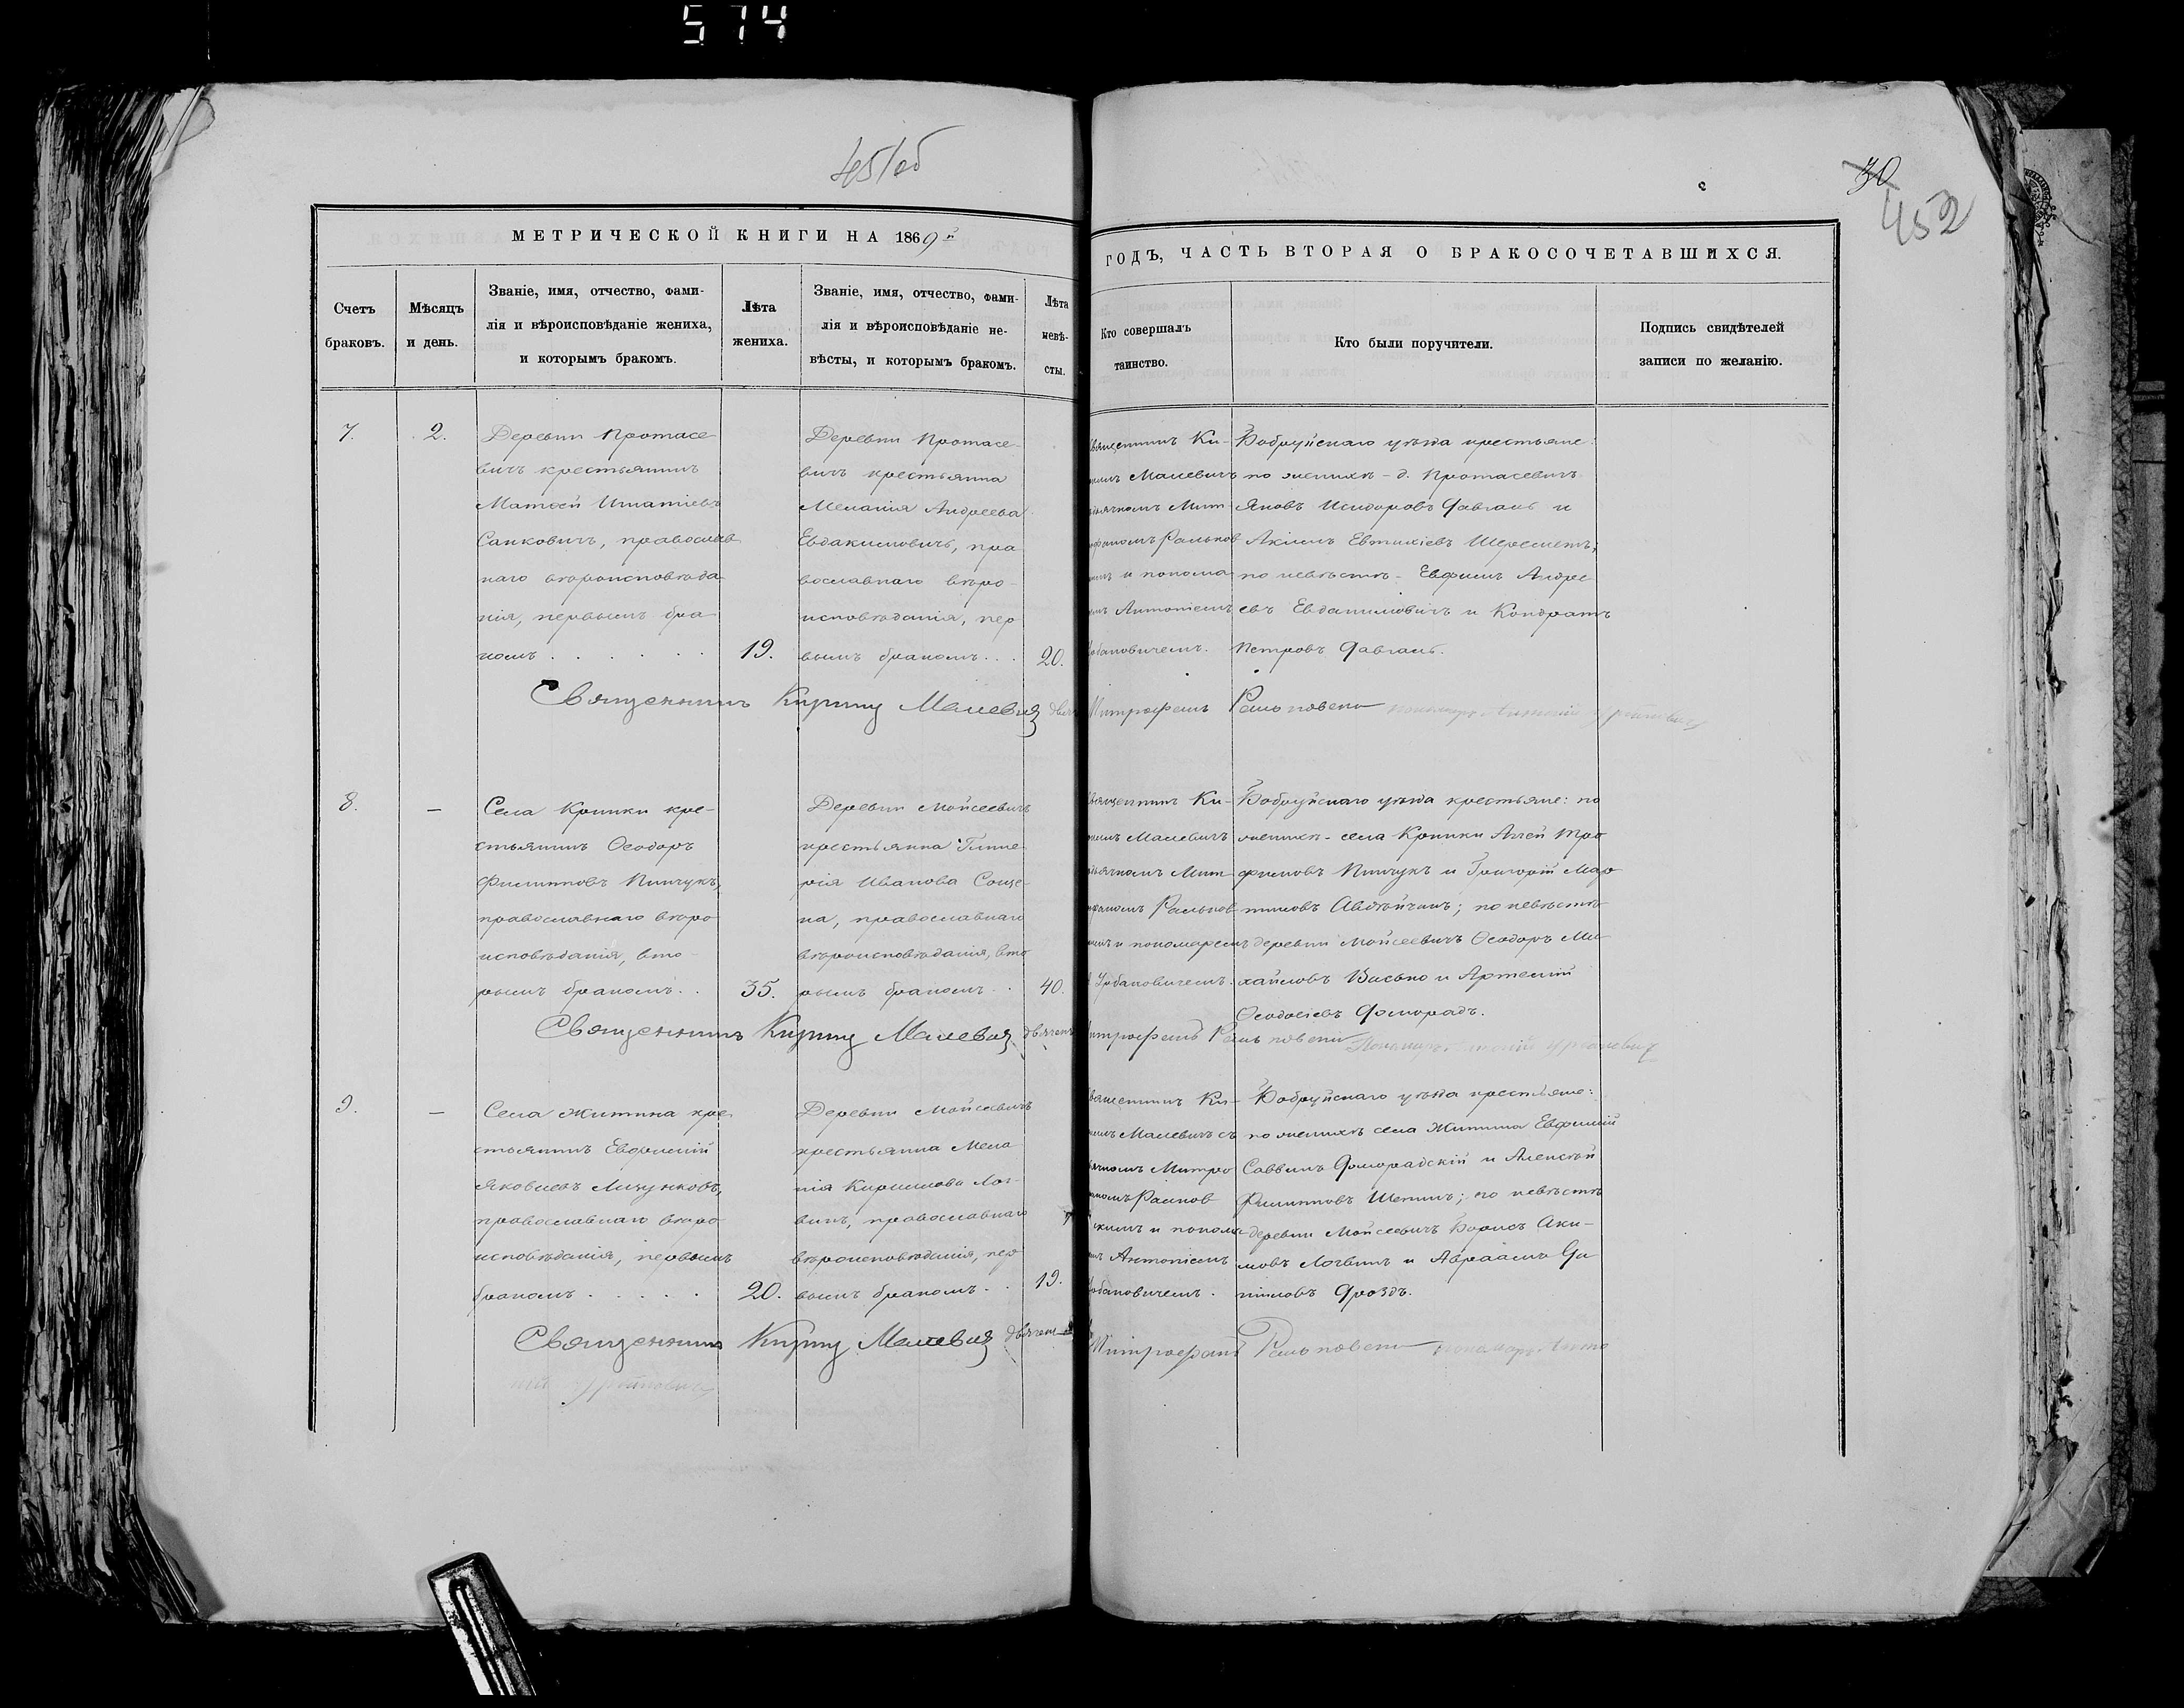 574
451об
30
452
МЕТРИЧЕСКОЙ КНИГИ НА 1869й
ГОДЪ, ЧАСТЬ ВТОРАЯ О БРАКОСОЧЕТАВШИХСЯ.
Счетъ
браковъ.
Мѣсяцъ
и день.
Званіе, имя, отчество, фами-
лія и вѣроисповѣданіе жениха,
и которымъ бракомъ.
Лѣта
жениха.
Званіе, имя, отчество, фами-
лія и вѣроисповѣданіе не-
вѣсты, и которымъ бракомъ.
Лѣта
невѣ-
сты.
Кто совершалъ
таинство.
Кто были поручители.
Подпись свидѣтелей
записи по желанію.
7.
2.
Деревни Протасе
вичъ крестьянинъ
Матѳей Игнатіевъ
Санковичъ, православ
наго вѣроисповѣда
нія, первымъ бра
комъ . . . . . .
19.
Деревни Протасе-
вичъ крестьянка
Меланія Андреева
Евдакимовичъ, пра
вославнаго вѣро-
исповѣданія, пер
вымъ бракомъ . . .
20.
Священникъ Ки-
Малевичъ
Мит
Ральков
и понома
Антоніемъ
Урбановичемъ.
Бобруйскаго уѣзда крестьяне:
по женихѣ - д. Протасевичъ
Яковъ Исидоровъ Давгаль и
Акимъ Евтихіевъ Шереметъ;
по невѣстѣ - Евфимъ Андре
евъ Евдакимовичъ и Кондратъ
Петровъ Давгаль.
Священникъ Кирилъ Малевичъ дьяч МитрофанъРальковскі пономарь Антоній Урбановичъ
8.
—
Села Крюки кре-
стьянинъ Ѳеодоръ
Филипповъ Пинчукъ,
православнаго вѣро
исповѣданія, вто-
рымъ бракомъ . .
35.
Деревни Мойсеевичъ
крестьянка Глике
рія Иванова
на, православнаго
вѣроисповѣданія, вто
рымъ бракомъ . .
40.
Священникъ Ки-
Малевичъ
Мит
Ральков
и пономаремъ
Урбановичемъ.
Бобруйскаго уѣзда крестьяне: по
женихѣ - села Крюки Тро
фимовъ Пинчукъ и Григорій Мар
тиновъ Авдѣйчикъ; по невѣстѣ
деревни Мойсеевичъ Ѳеодоръ Ми
хайловъ Васько и Артемій
Ѳеодосіевъ Доморадъ.
Священникъ Кирилъ Малевичъ дьячекъ Митрофанъ Ральковскі Пономарь Антоній Урбановичъ
9.
—
Села Житина кре
стьянинъ Евфимій
Яковлевъ
православнаго вѣро
исповѣданія, первымъ
бракомъ . . . . .
20.
Деревни Мойсеевичъ
крестьянка Мела
нія Кириллова Лог-
винъ, православнаго
вѣроисповѣданія, пер
вымъ бракомъ . .
19.
Священникъ Ки-
Малевичъ съ
Митро
скимъ и понома
Антоніемъ
Урбановичемъ.
Бобруйскаго уѣзда крестьяне:
по женихѣ села Житина Евфимій
Саввинъ Доморадскій и Алексѣй
Филипповъ; по невѣстѣ
деревни Мойсеевичъ Борисъ Аки-
мовъ Логвинъ и Авраамъ Да
ниловъ Дроздъ.
Священникъ Кирилъ Малевичъ дьячекъ Митрофанъ Ральковскі пономарь Анто
ній Урбановичъ